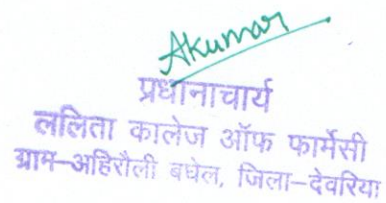 Akumar
प्रधानाचार्य
ललिता कालेज ऑफ फार्मेसी
ग्राम-अहिरौली बघेल, जिला-देवरिया